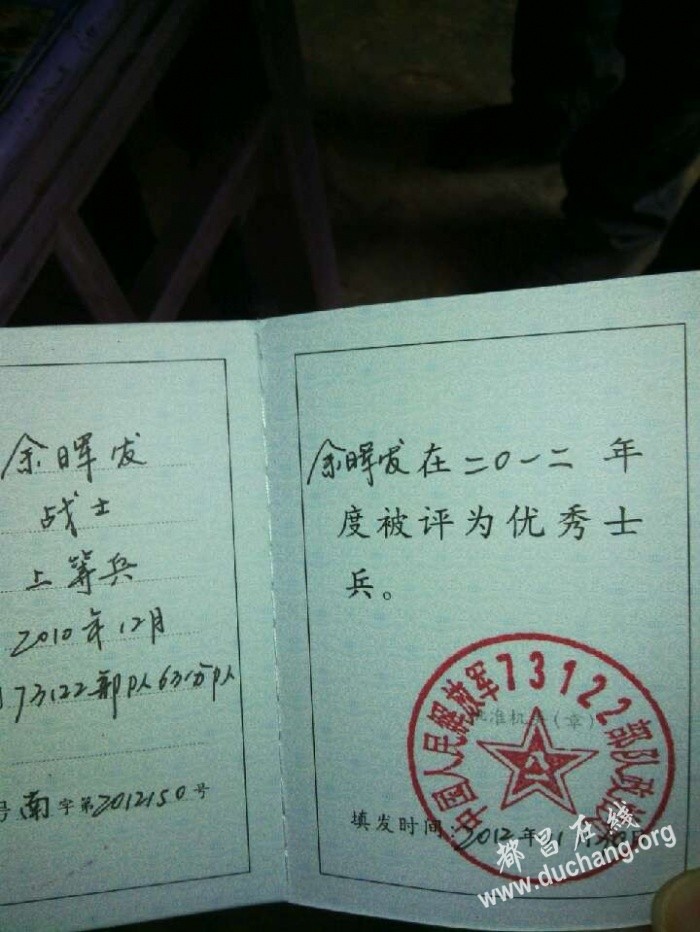 余晖发
战士
上等兵
2010年12月
73122部队63分队
号南字第2012150号
余晖发在二〇一二年
度被评为优秀士
兵。
中国人民解放军73122部队政治
批准机关(章)
填发时间:2012年11月
都昌在线
www.duchang.org